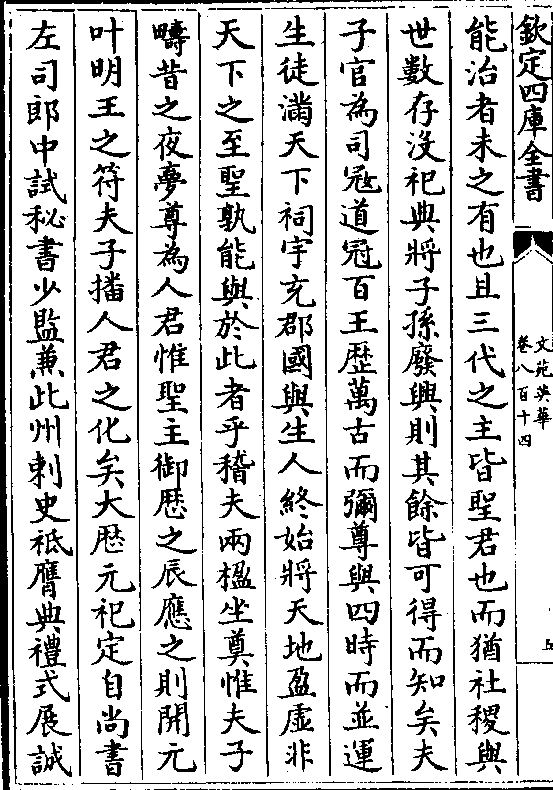 欽定四庫全書
文苑英華
卷八百十四
五
能治者未之有也且三代之主皆聖君也而猶社稷與
世數存沒祀典將子孫廢興則其餘皆可得而知矣夫
子官為司冦道冠百王歴萬古而彌尊與四時而並運
生徒滿天下祠宇充郡國與生人終始將天地盈虛非
天下之至聖孰能與於此者乎稽夫兩楹坐奠惟夫子
疇昔之夜夢尊為人君惟聖主御歴之辰應之則開元
叶明王之符夫子播人君之化矣大歴元祀定自尚書
左司郎中試秘書少監兼此州刺史祗膺典禮式展誠